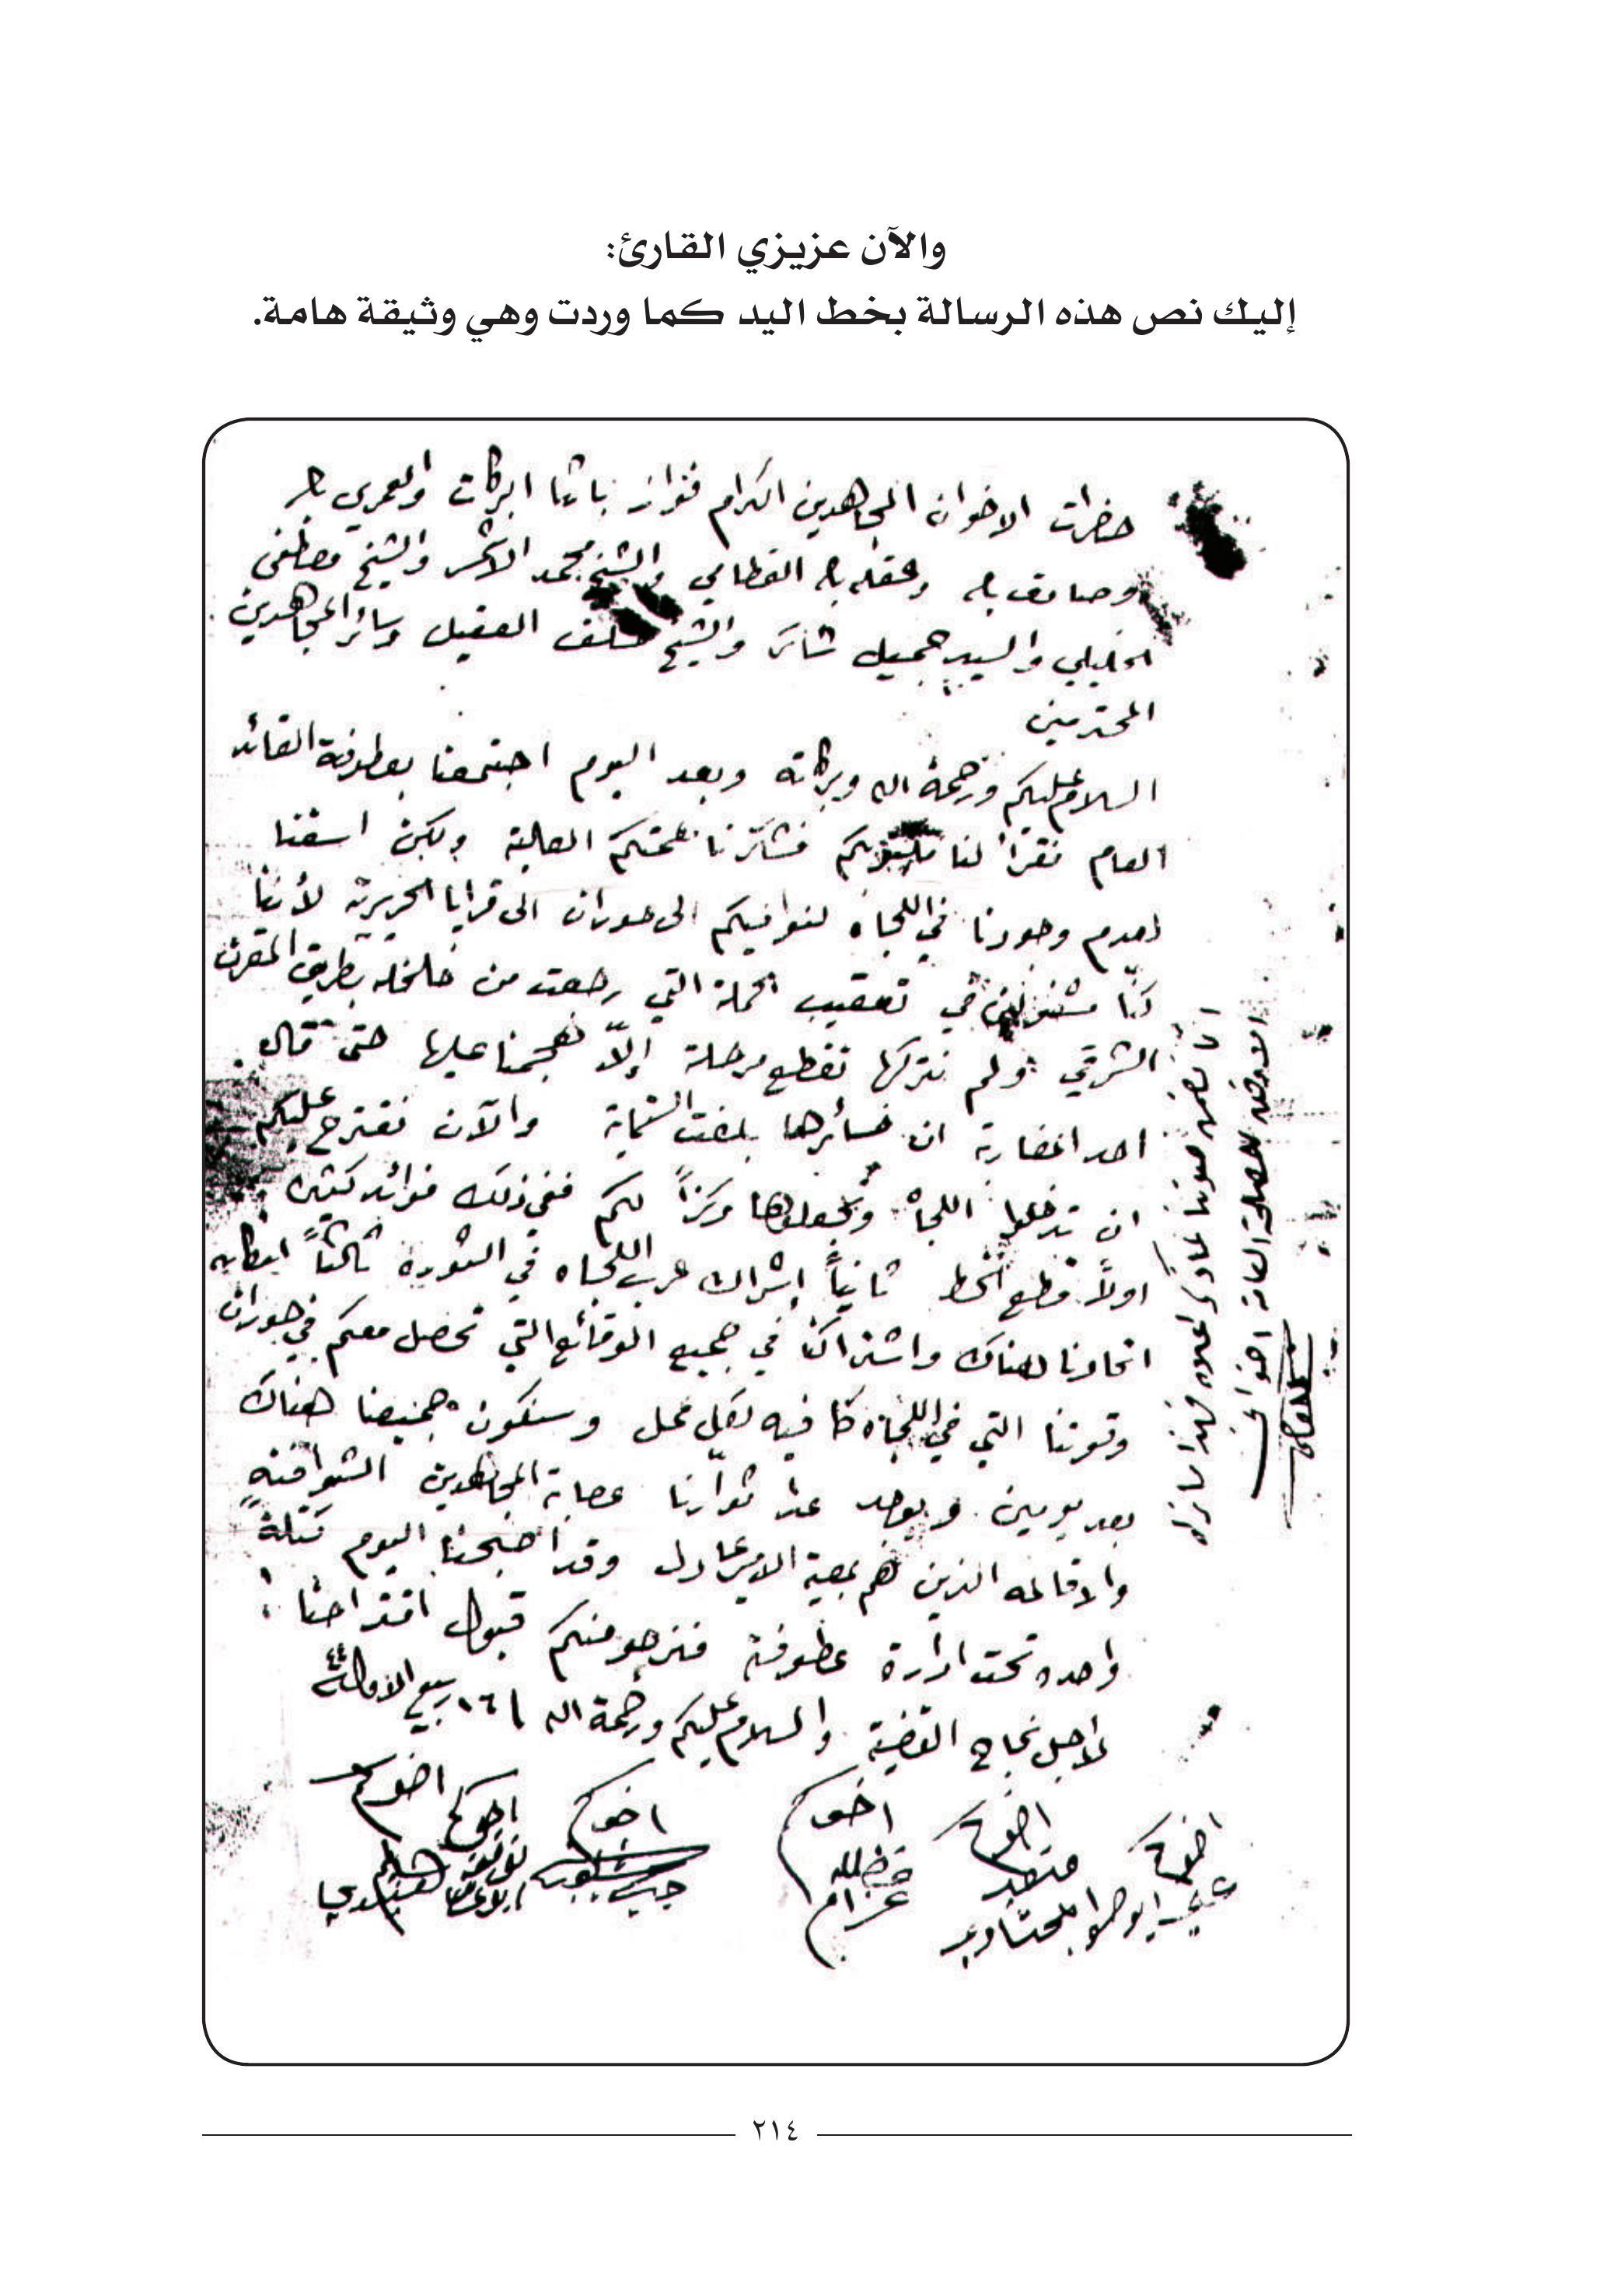 والآن عزيزي القارئ:
إليك نص هذه الرسالة بخط اليد كما وردت وهي وثيقة هامة.
حضرات الاخوان المجاهدين الكرام فواز باشا البركات والعمري بك
وصادق بك وعقله بك القطامي والشيخ محمد الاشمر والشيخ مصطفى
الخليلي والسيد جميل شاكر والشيخ خلف المقبل وسائر المجاهدين
المحترمين
السلام عليكم ورحمة الله وبركاته وبعد اليوم اجتمعنا بعطوفة القائد
العام فقرأ لنا فشكرنا همتكم العالية ولكن اسفنا
لعدم وجودنا في اللجاه لنوافيكم الى حوران الى قرايا الحريرية لأننا
كنا مشغولين في تعقيب الحملة التي رجعت من خلخله بطريق المقرن
الشرقي ولم نتركها تقطع مرحلة إلاّ نهجمنا عليها حتى قال
احد ان خسائرها بلغت الستماية والآن نقترح عليكم
ان تدخلوا اللجاه وتجعلوها مركزاً لكم ففي ذلك فوائد كثيره
اولاً قطع الخط ثانياً إشراك عرب اللجاه في الثوره ثالثاً امكان
اتحادنا هناك واشتراكنا في جميع الوقائع التي تحصل معكم في حوران
وقوتنا التي في اللجاه كافيه لكل عمل وسنكون جميعنا هناك
بعد يومين ويوجد عند ثوارنا عصابة المجاهدين الشوافنه
والاقالمه الذين هم بمعية الامير عادل وقد اصبحنا اليوم كتلة
واحده تحت ادارة عطوفة فنرجو منكم قبول اقتراحنا
لاجل نجاح القضية والسلام عليكم ورحمة الله ١٦ ربيع الاول سنة ٤٤
اخوكم
اخوكم
اخوكم
اخوكم
اخوكم
اخوكم
فضل الله
عزام
الاوفق للمصلحة العامة اخواني
٢١٤